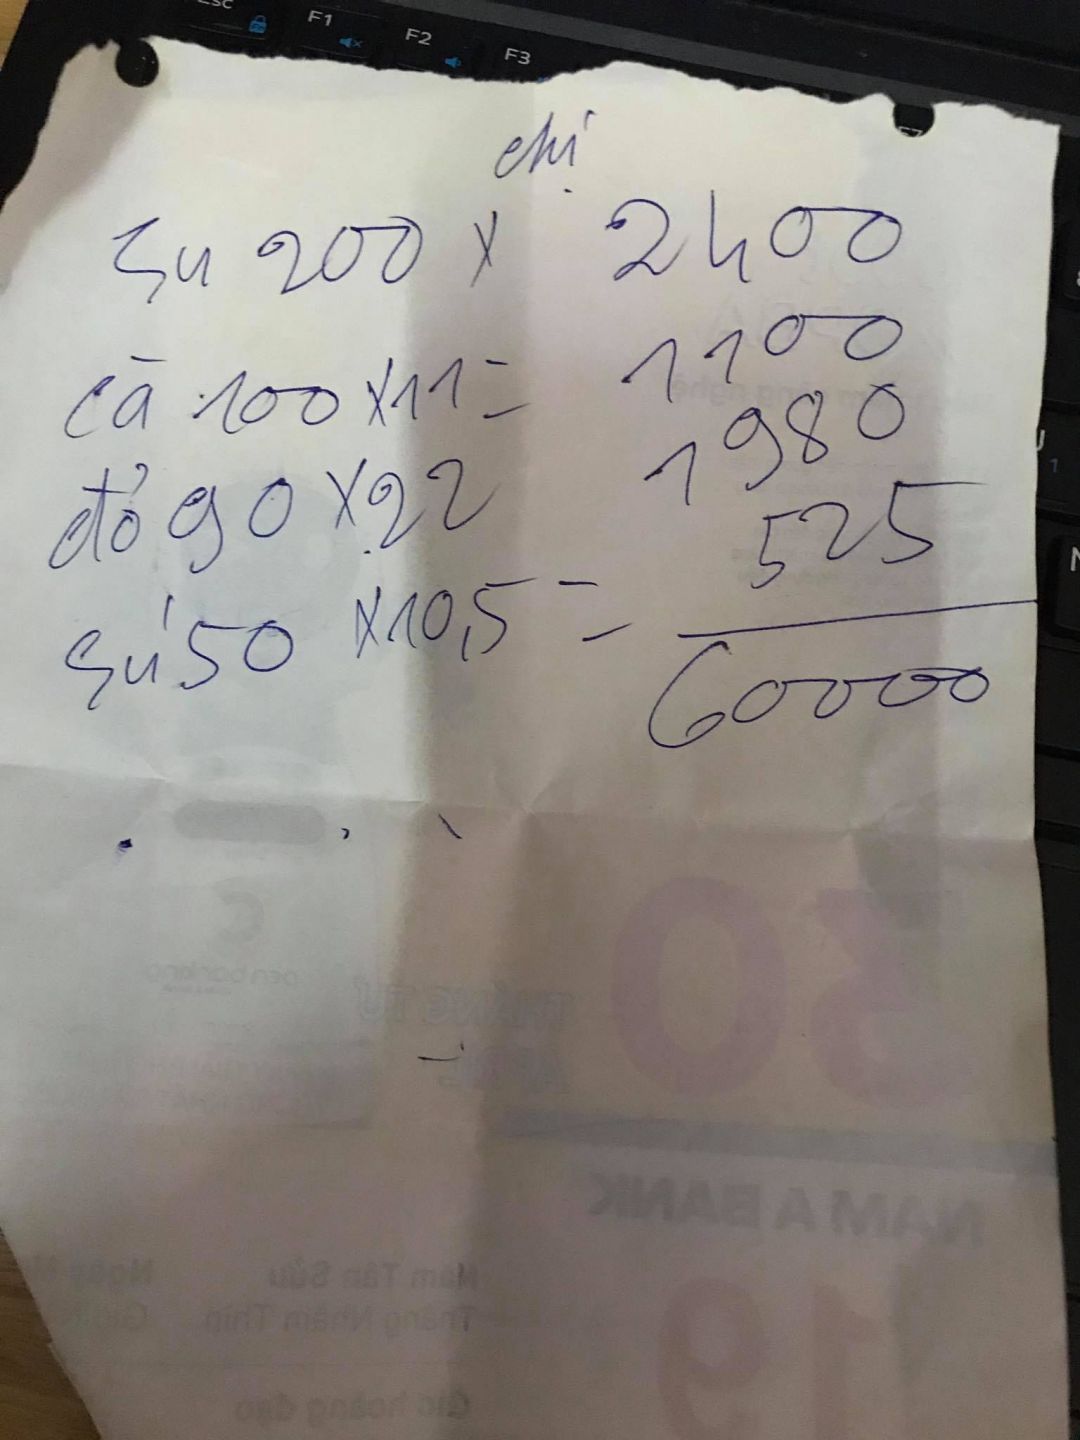 Esc F1 F2 F3
chị
Su 200 x 2400
cà 100 x 11 = 1100
đỏ 90 x 22 1980
sú 50 x 10,5 = 525
60000
30
THÁNG TƯ
NAM A BANK
Năm Tân Sửu
Tháng Nhâm Thìn
Giờ hoàng đạo
19